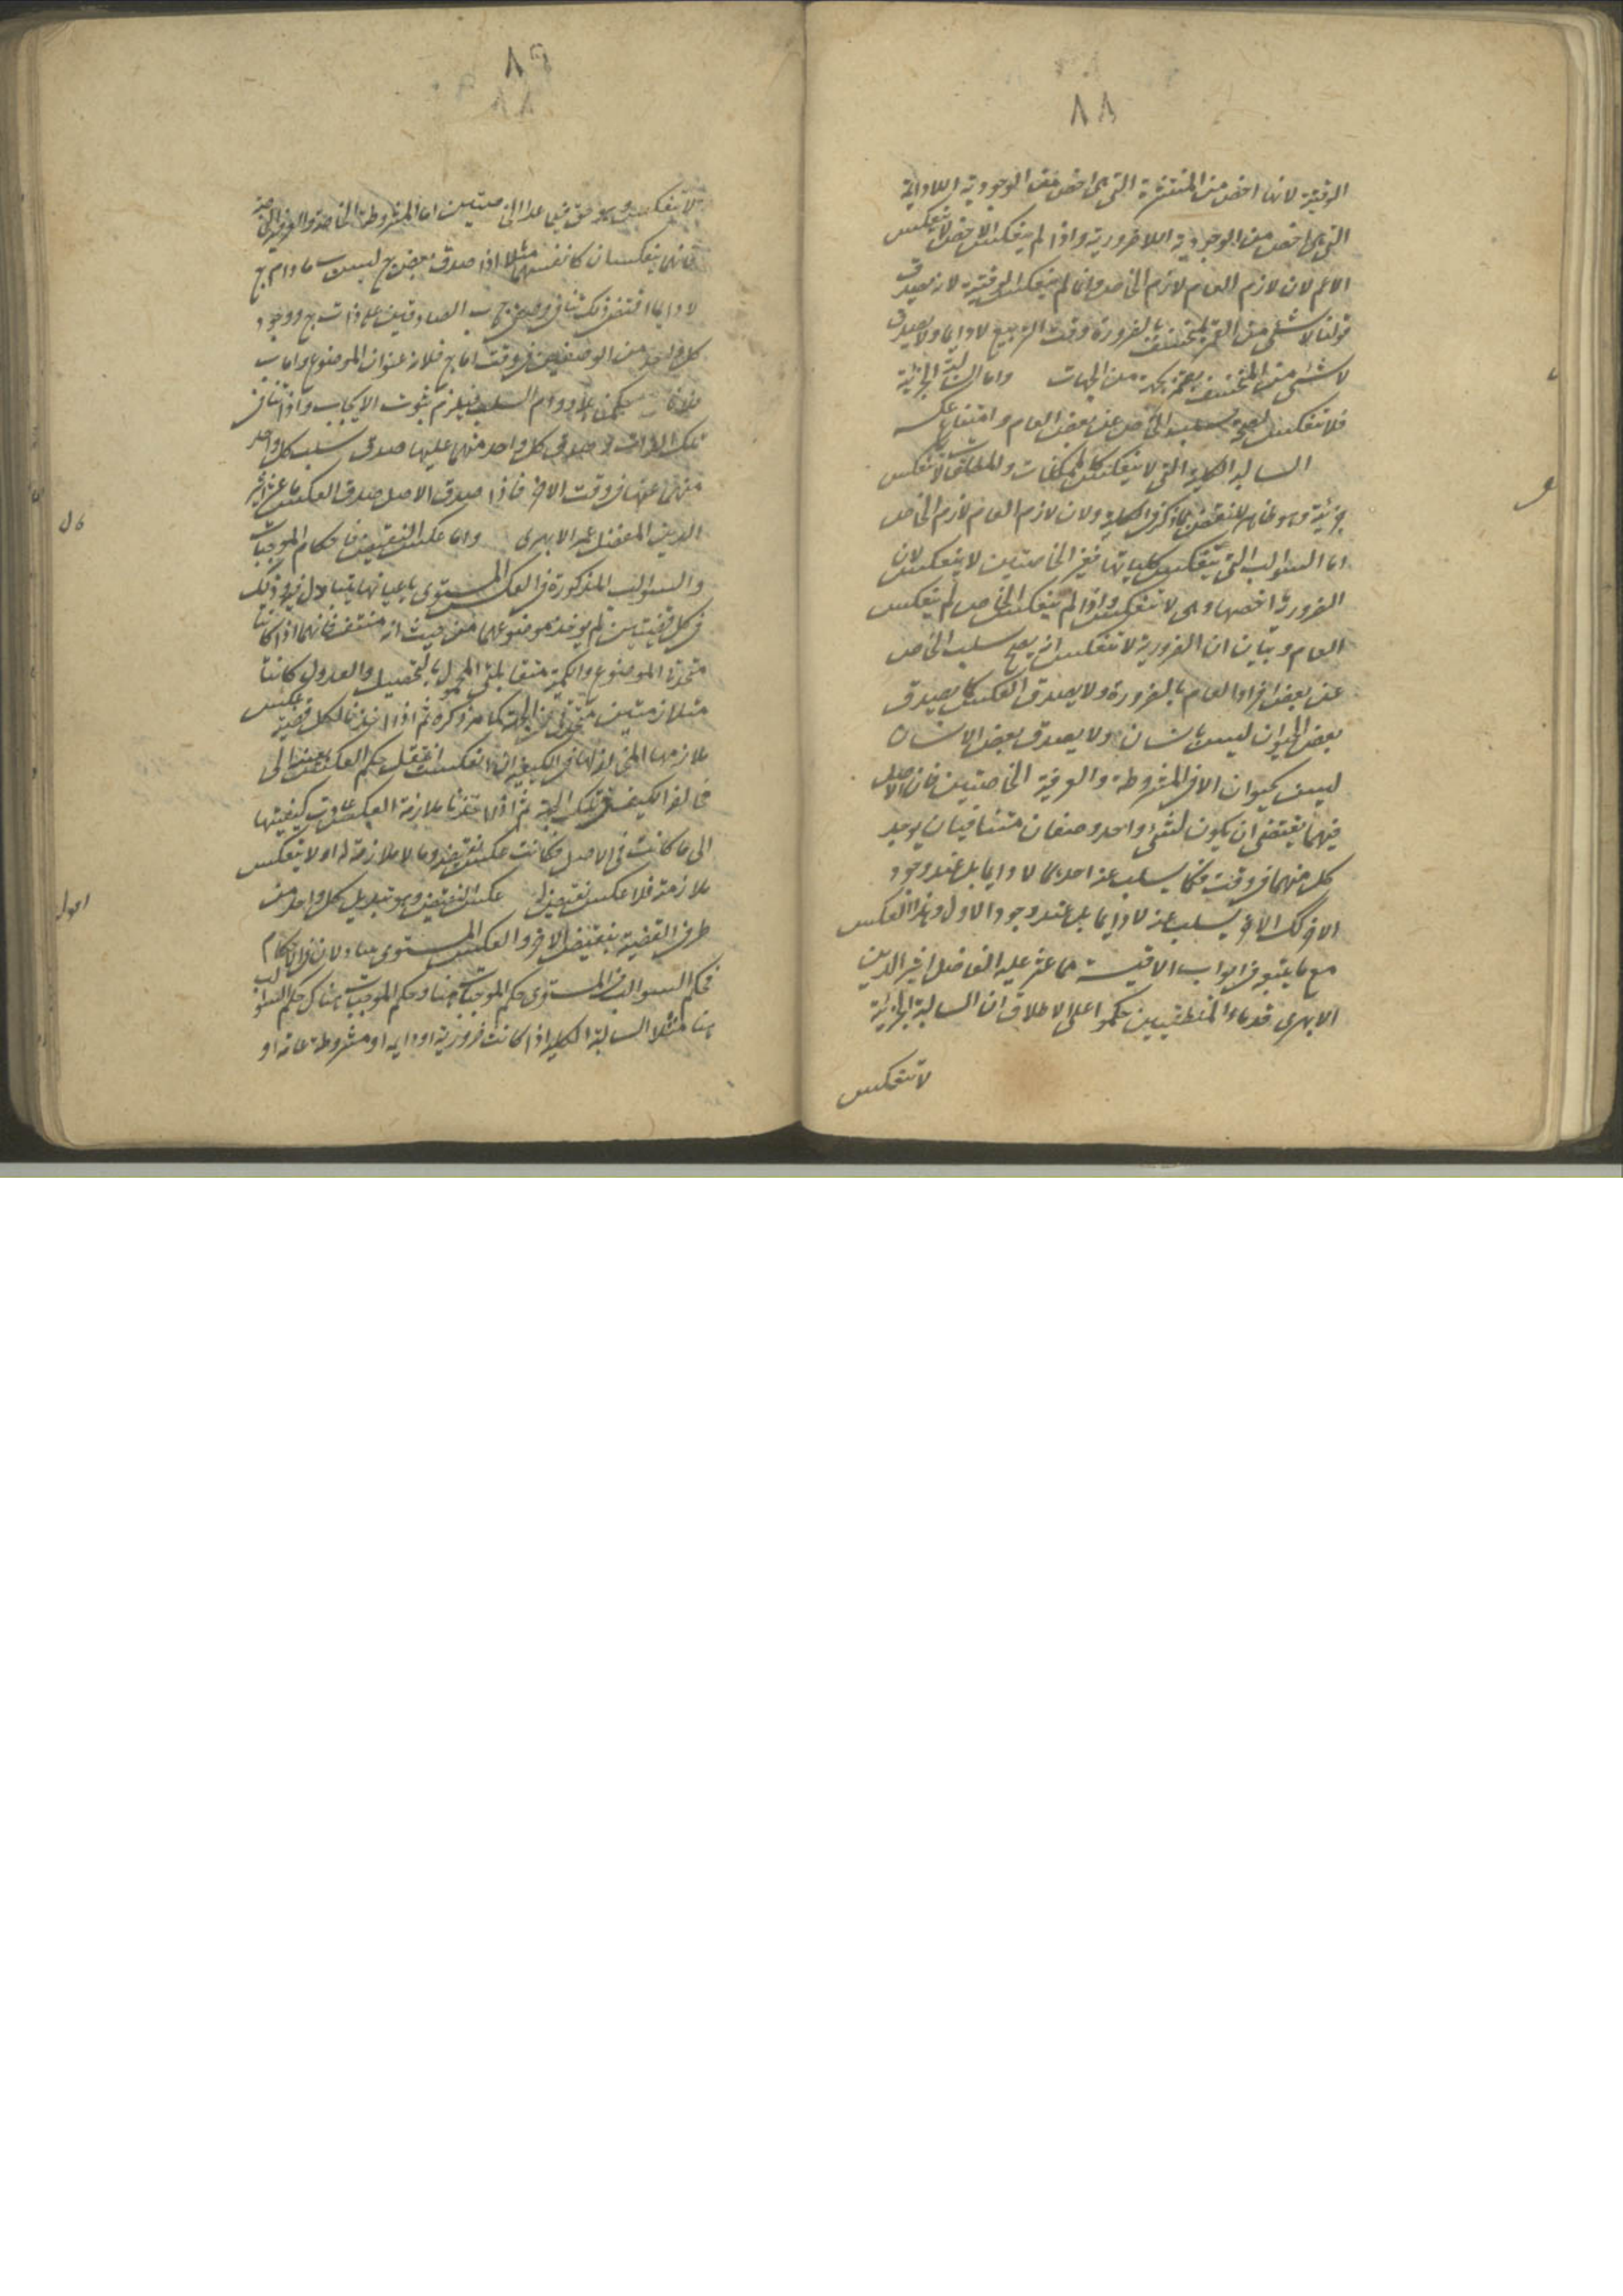 ٨٨
الوقتية لانها اخص من المنتشرة التى هى اخص من الوجودية اللادايمة
التى هى اخص من الوجودية اللاضرورية واذا لم ينعكس الاخص لا ينعكس
الاعم لان لازم العام لازم الخاص وانما لم ينعكس الوقتية لانه يصدق
قولنا لا شئ من القمر بمنخسف بالضرورة وقت التربيع لا دايما ولا يصدق
لا شئ من المنخسف بقمر بجهة من الجهات واما السالبة الجزئية
فلا تنعكس لصحة سلب الخاص عن بعض العام وامتناع عكسه
السالبة الكلية التى لا ينعكس كالممكنات والمطلقة لا تنعكس
جزئية وهو ظاهر للنقض بما ذكر فى الكلية ولان لازم العام لازم الخاص
اما السوالب التى ينعكس كلياتها فغير الخاصتين لا ينعكس لان
الضرورية اخصها وهى لا تنعكس واذا لم ينعكس الخاص لم ينعكس
العام وبيان ان الضرورية لا تنعكس انه يصح سلب الخاص
عن بعض افراد العام بالضرورة ولا يصدق العكس كما يصدق
بعض الحيوان ليس بانسان ولا يصدق بعض الانسان
ليس بحيوان الا فى المشروطة والعرفية الخاصتين فان الاصل
فيهما يقتضى ان يكون لشئ واحد وصفان متنافيان يوجد
كل منهما فى وقت فكما يسلب عنه احدهما لا دايما بل عند وجود
الاخر كذلك الاخر يسلب عنه لا دايما بل عند وجود الاول وهذا العكس
مع ما يتبعه فى ابواب الاقيسة مما عثر عليه الفاضل اثير الدين
الابهرى قدماء المنطقيين حكموا على الاطلاق ان السالبة الجزئية
لا تنعكس
٨٩
٨٨
لا تنعكس وهو حق فيما عدا الخاصتين اما المشروطة الخاصة والعرفية الخاصة
فانهما ينعكسان كانفسهما مثلا اذا صدق بعض ج ليس ب ما دام ج
لا دايما اقتضى ذلك تنافى وصفى ج ب الصادقين على ذات ج ووجود
كل واحد من الوصفين فى وقت اما ج فلانه عنوان الموضوع واما ب
فلانه دوام السلب فيلزم ثبوت الايجاب واذا تنافى
تلك الذات وصدق كل واحد منهما عليها صدق سلب كل واحد
منهما عنها فى وقت الاخر فاذا صدق الاصل صدق العكس ما عثر اثير
الدين المفضل عمر الابهرى واما عكس النقيض فاحكام الموجبات
والسوالب المذكورة فى العكس المستوى باعيانها يتبادل فيه وذلك
فى كل قضيتين لم يوخذ موضوعهما من حيث انه منتف فانهما اذا كانتا
متحدتا الموضوع والكمية متقابلتى المحمول بالتحصيل والعدول كانتا
متلازمتين متحدتى الجهة كما مر ذكره ثم اذا اخذنا لكل قضية عكس
ملازمها المخالف لها فى الكيفية ان انعكست انتقل حكم العكس عنها الى
مخالف الكيف فى تلك الجهة ثم اذا اخذنا ملازمة العكس عادت كيفيتها
الى ما كانت فى الاصل فكانت عكس نقيضه وما لا ملازمة له او لا ينعكس
ملازمته فلا عكس نقيض له عكس النقيض وهو تبديل كل واحد من
طرفى القضية بنقيض الاخر والعكس المستوى يتبادلان فى الاحكام
فحكم السوالب فى المستوى حكم الموجبات هنا وحكم الموجبات هناك حكم السوالب
هنا مثلا السالبة الكلية اذا كانت ضرورية او دايمه او مشروطة عامة او
قال
اقول